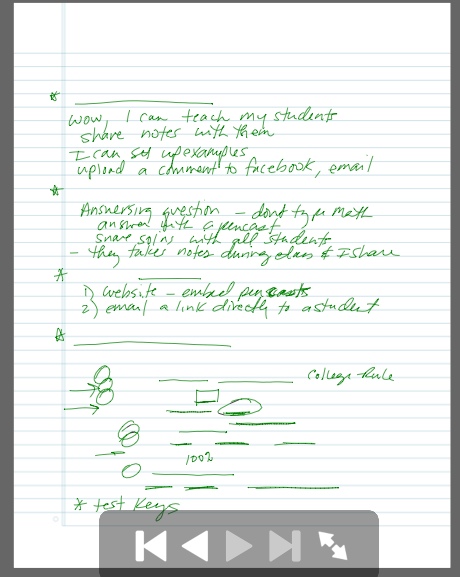 *
wow, I can teach my students
share notes with them
I can set up examples
upload a comment to facebook, email
*
Answersing question - dont type math
answer with a pencast
share soln's with all students
- they takes notes during class & I share
*
1) website - embed pencasts
2) email a link directly to a student
*
College-Rule
1002
* test keys